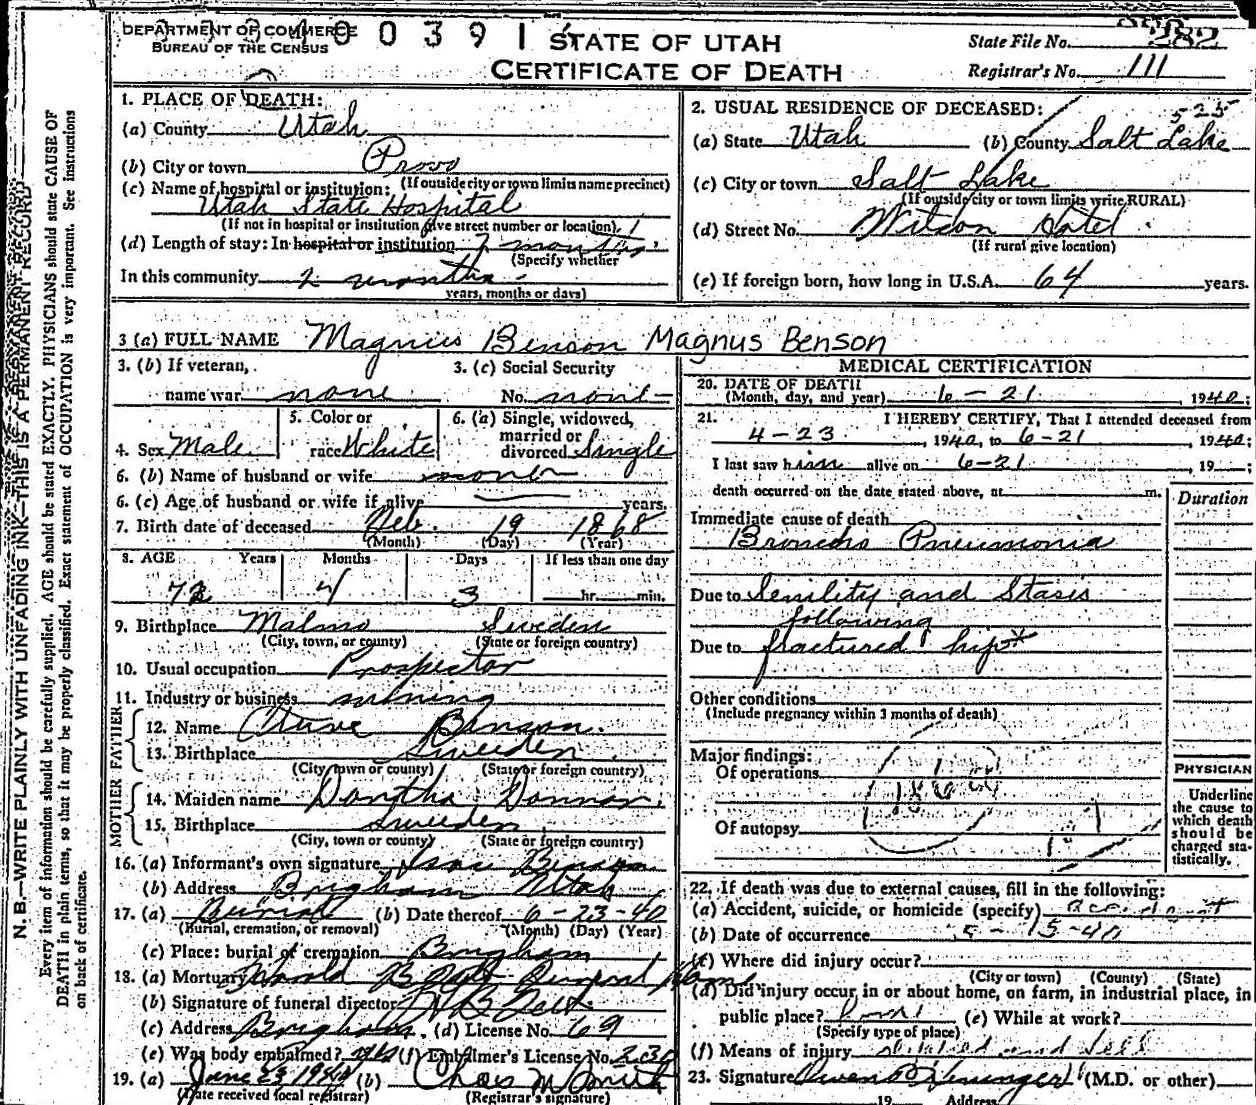 DEPARTMENT OF COMMERCE
BUREAU OF THE CENSUS
0 0 3 9 1
STATE OF UTAH
CERTIFICATE OF DEATH
State File No. 282
Registrar's No. 111
N.B.—WRITE PLAINLY WITH UNFADING INK—THIS IS A PERMANENT RECORD
Every item of information should be carefully supplied. AGE should be stated EXACTLY. PHYSICIANS should state CAUSE OF
DEATH in plain terms, so that it may be properly classified. Exact statement of OCCUPATION is very important. See instructions
on back of certificate.
1. PLACE OF DEATH:
(a) County Utah
(b) City or town Provo
(If outside city or town limits name precinct)
(c) Name of hospital or institution:
Utah State Hospital
(If not in hospital or institution give street number or location)
(d) Length of stay: In hospital or institution 2 months
(Specify whether
In this community 2 months
years, months or days)
2. USUAL RESIDENCE OF DECEASED: 525
(a) State Utah (b) County Salt Lake
(c) City or town Salt Lake
(If outside city or town limits write RURAL)
(d) Street No. Hotel
(If rural give location)
(e) If foreign born, how long in U.S.A. 64 years.
3 (a) FULL NAME Magnus Benson Magnus Benson
3. (b) If veteran,
name war none
3. (c) Social Security
No. none
4. Sex Male
5. Color or
race White
6. (a) Single, widowed,
married or
divorced Single
6. (b) Name of husband or wife none
6. (c) Age of husband or wife if alive years.
7. Birth date of deceased Feb. 19 1868
(Month) (Day) (Year)
8. AGE Years Months Days If less than one day
72 4 3 hr. min.
9. Birthplace Malmo Sweden
(City, town, or county) (State or foreign country)
10. Usual occupation Prospector
11. Industry or business mining
FATHER
12. Name Benson.
13. Birthplace Sweeden
(City, town or county) (State or foreign country)
MOTHER
14. Maiden name
15. Birthplace Sweeden
(City, town or county) (State or foreign country)
16. (a) Informant's own signature Benson
(b) Address Brigham Utah
17. (a) Burial (b) Date thereof 6-23-40
(Burial, cremation, or removal) (Month) (Day) (Year)
(c) Place: burial or cremation Brigham
18. (a) Mortuary Harold B Felt Funeral Home
(b) Signature of funeral director H B Felt.
(c) Address Brigham. (d) License No. 69
(e) Was body embalmed? yes (f) Embalmer's License No. 230
19. (a) June 23, 1940 (b) Chas M Smith
(Date received local registrar) (Registrar's signature)
MEDICAL CERTIFICATION
20. DATE OF DEATH
(Month, day, and year) 6-21, 1940;
21. I HEREBY CERTIFY, That I attended deceased from
4-23, 1940, to 6-21, 1940;
I last saw him alive on 6-21, 19 ;
death occurred on the date stated above, at m.
Duration
Immediate cause of death
Broncho Pneumonia
Due to Senility and Stasis
following
Due to fractured hip*
Other conditions
(Include pregnancy within 3 months of death)
Major findings:
Of operations 186
Of autopsy
PHYSICIAN
Underline
the cause to
which death
should be
charged sta-
tistically.
22. If death was due to external causes, fill in the following:
(a) Accident, suicide, or homicide (specify) accident
(b) Date of occurrence 5-15-40
(c) Where did injury occur?
(City or town) (County) (State)
(d) Did injury occur in or about home, on farm, in industrial place, in
public place? (e) While at work?
(Specify type of place)
(f) Means of injury slipped and fell
23. Signature (M.D. or other)
19 Address